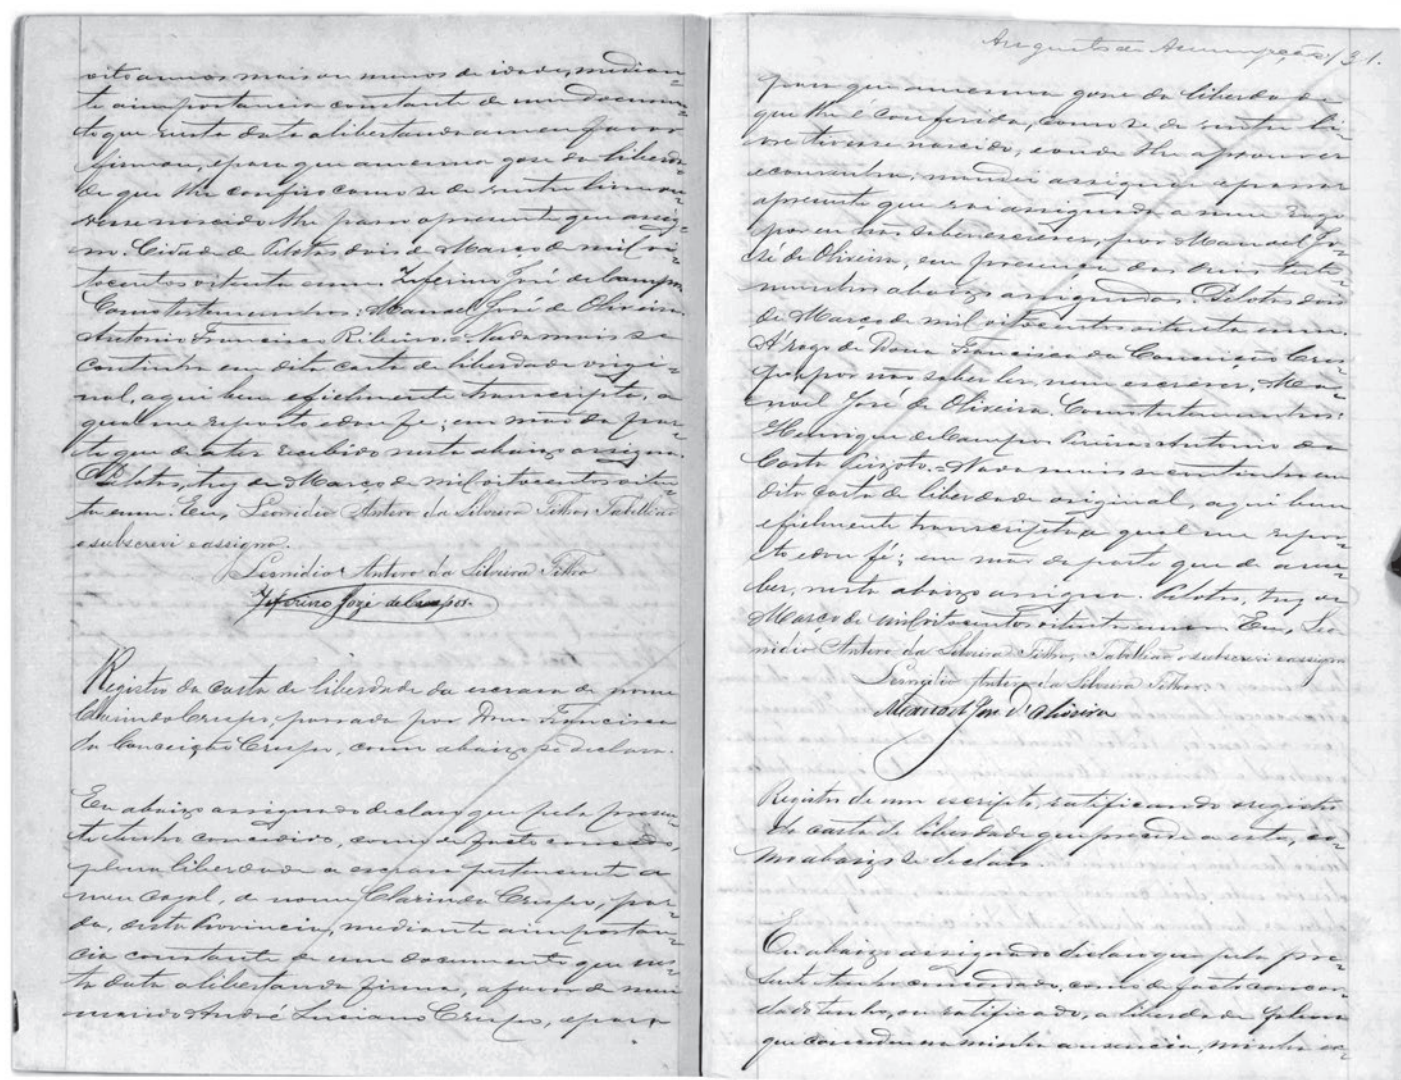 oito annos mais ou menos de idade, median-
te a importancia constante de um documen-
to que nesta data a libertanda a meu favor
firmou, e para que a mesma gose da liberda-
de que lhe confiro como se de ventre livre ti-
vesse nascido lhe passo a presente que assig-
no. Cidade de Pelotas dois de Março de mil oi-
tocentos oitenta e um. Zeferino José de Campos.
Como testemunhas: Manoel José de Oliveira.
Antonio Francisco Ribeiro.= Nada mais se
continha em dita carta de liberdade origi-
nal, aqui bem e fielmente transcripta, a
qual me reporto e dou fé; em mão da par-
te que de a ter recebido nesta abaixo assigna.
Pelotas, trez de Março de mil oitocentos oiten-
ta e um. Eu, Leonidio Antero da Silveira Filho, Tabellião
o subscrevi e assigno.
Leonidio Antero da Silveira Filho
Zeferino Jozé de Campos.
Registro da carta de liberdade da escrava de nome
Clarinda Crespo, passada por Dona Francisca
da Conceição Crespo, como abaixo se declara.
Eu abaixo assignado declaro que pela presen-
te tenho concedido, como de facto concedo,
plena liberdade a escrava pertencente a
meu casal, de nome Clarinda Crespo, par-
da, desta Provincia, mediante a importan-
cia constante de um documento que nes-
ta data a libertanda firma, a favor de meu
marido André Luciano Crespo, e para
Augusto de Assumpção / 31.
para que a mesma gose da liberdade
que lhe é conferida, como se de ventre li-
vre tivesse nascido, e onde lhe aprouver
e convenha; mandei assignar e passar
a presente que vai assignada a meu rogo
por eu não saber escrever, por Manoel Jo-
sé de Oliveira, em presença das duas teste-
munhas abaixo assignadas. Pelotas dois
de Março de mil oitocentos oitenta e um.
Á rogo de Dona Francisca da Conceição Cres-
po, por não saber ler, nem escrever, Ma-
noel José de Oliveira. Como testemunhas:
Henrique de Campos Antonio da
Costa Peixoto.= Nada mais se continha em
dita carta de liberdade original, aqui bem
e fielmente transcripta a qual me repor-
to e dou fé; em mão da parte que de a rece-
ber, nesta abaixo assigna. Pelotas, trez de
Março de mil oitocentos oitenta e um. Eu, Leo-
nidio Antero da Silveira Filho, Tabellião o subscrevi e assigno
Leonidio Antero da Silveira Filho.
Manoel Jose d'Oliveira
Registro de um escripto, ratificando o registro
da carta de liberdade que precede a esta, co-
mo abaixo se declara.
Eu abaixo assignado declaro que pela pre-
sente tenho concordado, como de facto concor-
dado tenho, ou ratificado, a liberdade plena
que concedeu na minha ausencia, minha